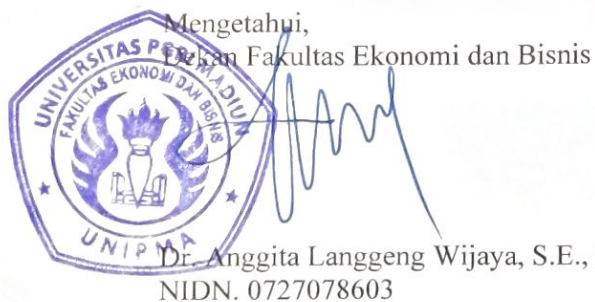 Mengetahui,
Dekan Fakultas Ekonomi dan Bisnis
UNIVERSITAS PGRI MADIUN
FAKULTAS EKONOMI DAN BISNIS
UNIPMA
Dr. Anggita Langgeng Wijaya, S.E.,
NIDN. 0727078603